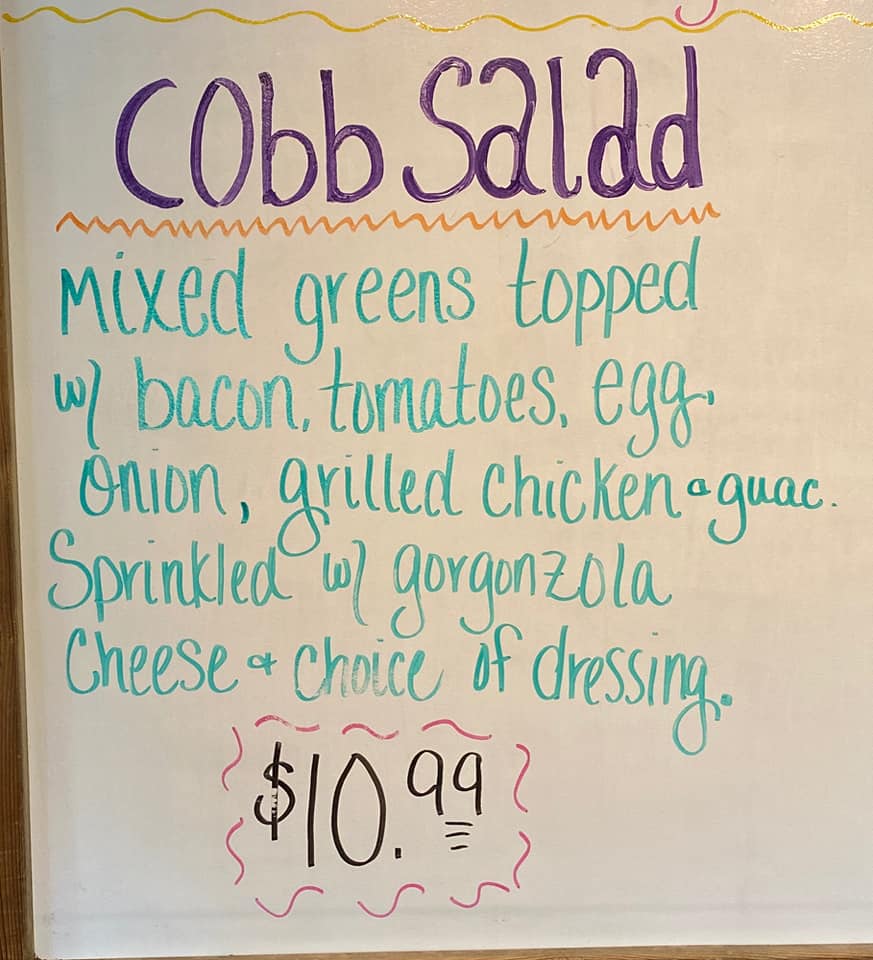 Cobb Salad
Mixed greens topped
w/ bacon, tomatoes, egg,
Onion, grilled chicken & guac.
Sprinkled w/ gorgonzola
Cheese & choice of dressing.
$10.99